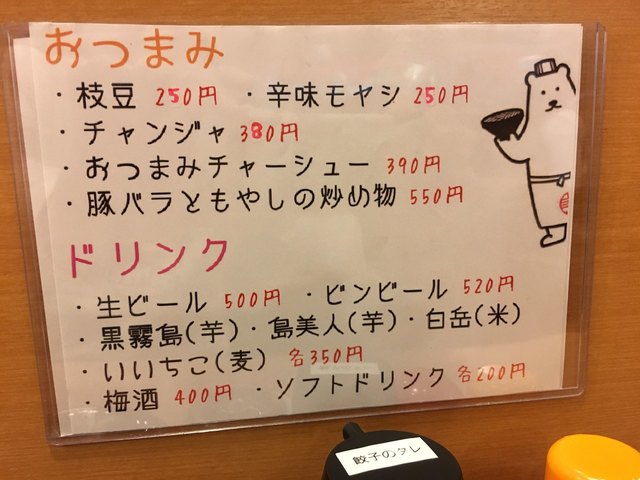 おつまみ
・枝豆 250円 ・辛味モヤシ 250円
・チャンジャ 380円
・おつまみチャーシュー 390円
・豚バラともやしの炒め物 550円
ドリンク
・生ビール 500円 ・ビンビール 520円
・黒霧島(芋)・島美人(芋)・白岳(米)
・いいちこ(麦) 各350円
・梅酒 400円 ・ソフトドリンク 各200円
餃子のタレ